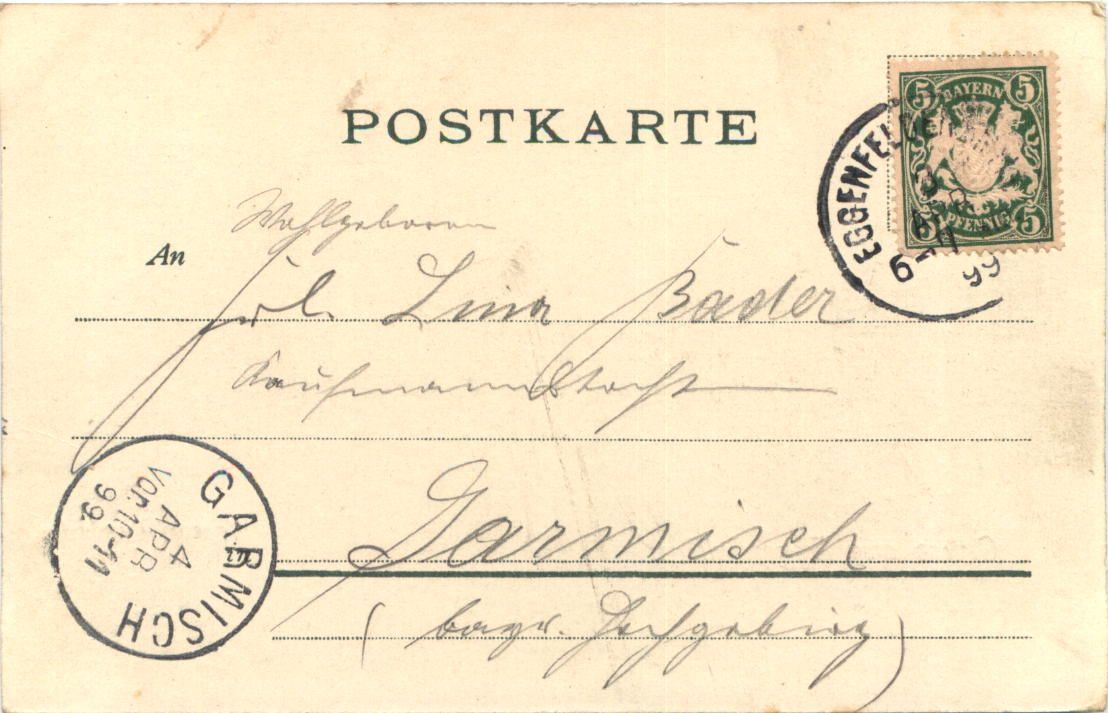 POSTKARTE
BAYERN
5 5
5 PFENNIG 5
EGGENFELDEN
3
APR
6-7
99
Wohlgeboren
An
Frl. Lina Bader
Kaufmannstocht
Garmisch
(bayr. Hochgebirg)
GARMISCH
4
APR
Vor.10-11
99